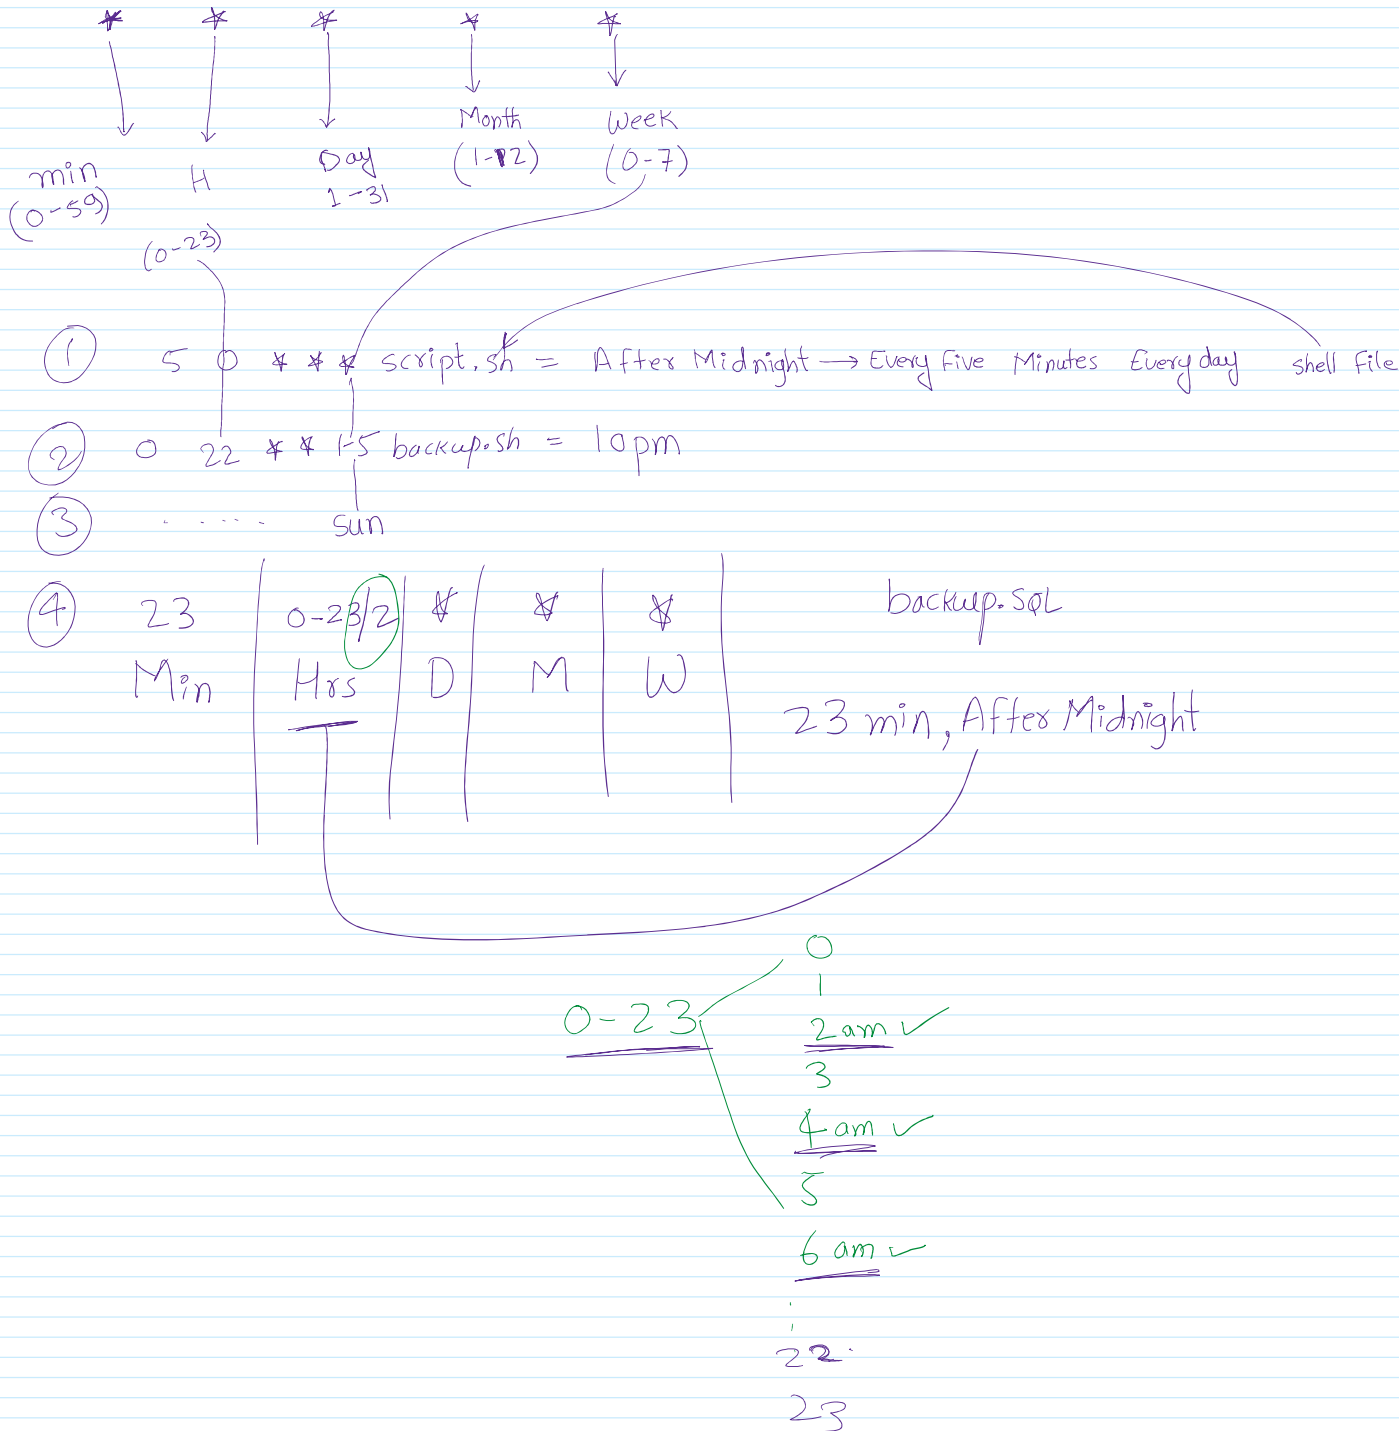 * * * * *
min H Day Month Week
(0-59) (0-23) 1-31 (1-12) (0-7)
① 5 0 * * * script.sh = After Midnight → Every Five Minutes Every day shell File
② 0 22 * * 1-5 backup.sh = 10pm
③ ....... sun
④ 23 0-23/2 * * * backup.SQL
Min Hrs D M W
23 min, After Midnight
0
1
0-23 2am ✓
3
4am ✓
5
6am ✓
:
22
23